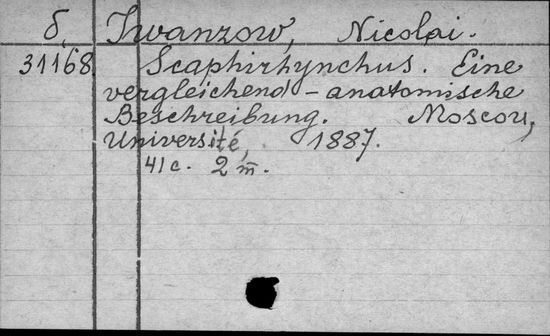 б, Iwanzow, Nicolai.
31168 Scaphirhynchus. Eine
vergleichend-anatomische
Beschreibung. Moscou,
Université, 1887.
41 c. 2 m̅.